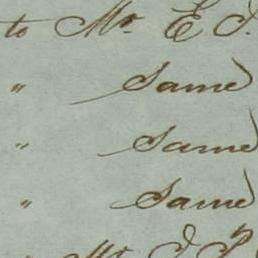 to Mr. E J.
" Same
" Same
" Same
" Mr. J P